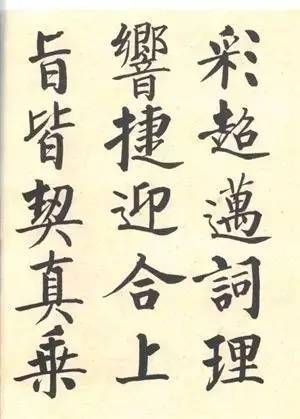 彩超邁詞理
響捷迎合上
旨皆契真乗